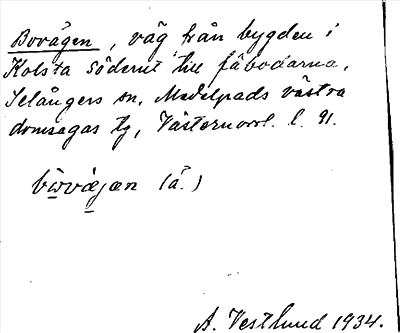 Bovägen, väg från bygden i
Kolsta söderut till fäbodarna,
Selångers sn, Medelpads västra
domsagas tg, Västernorrl. l. 91.
(ä.)
A. Vestlund 1934.